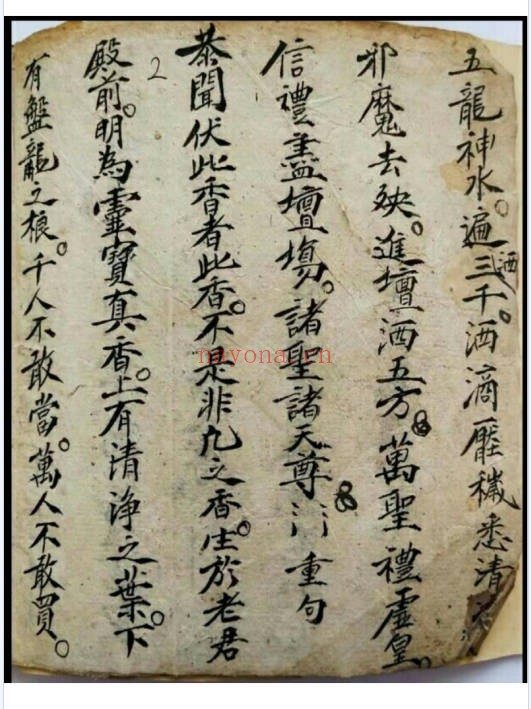 五龍神水。遍洒三千。洒滴壓穢悉清
邪魔去殃。進壇洒五方。萬聖禮虛皇。
信禮盡壇場。諸聖諸天尊 重句
恭聞伏此香者此香。不是非凡之香。生於老君
殿前。明為靈寶真香。上有清淨之葉。下
有盤龍之根。千人不敢當。萬人不敢買。
2
nayona.cn